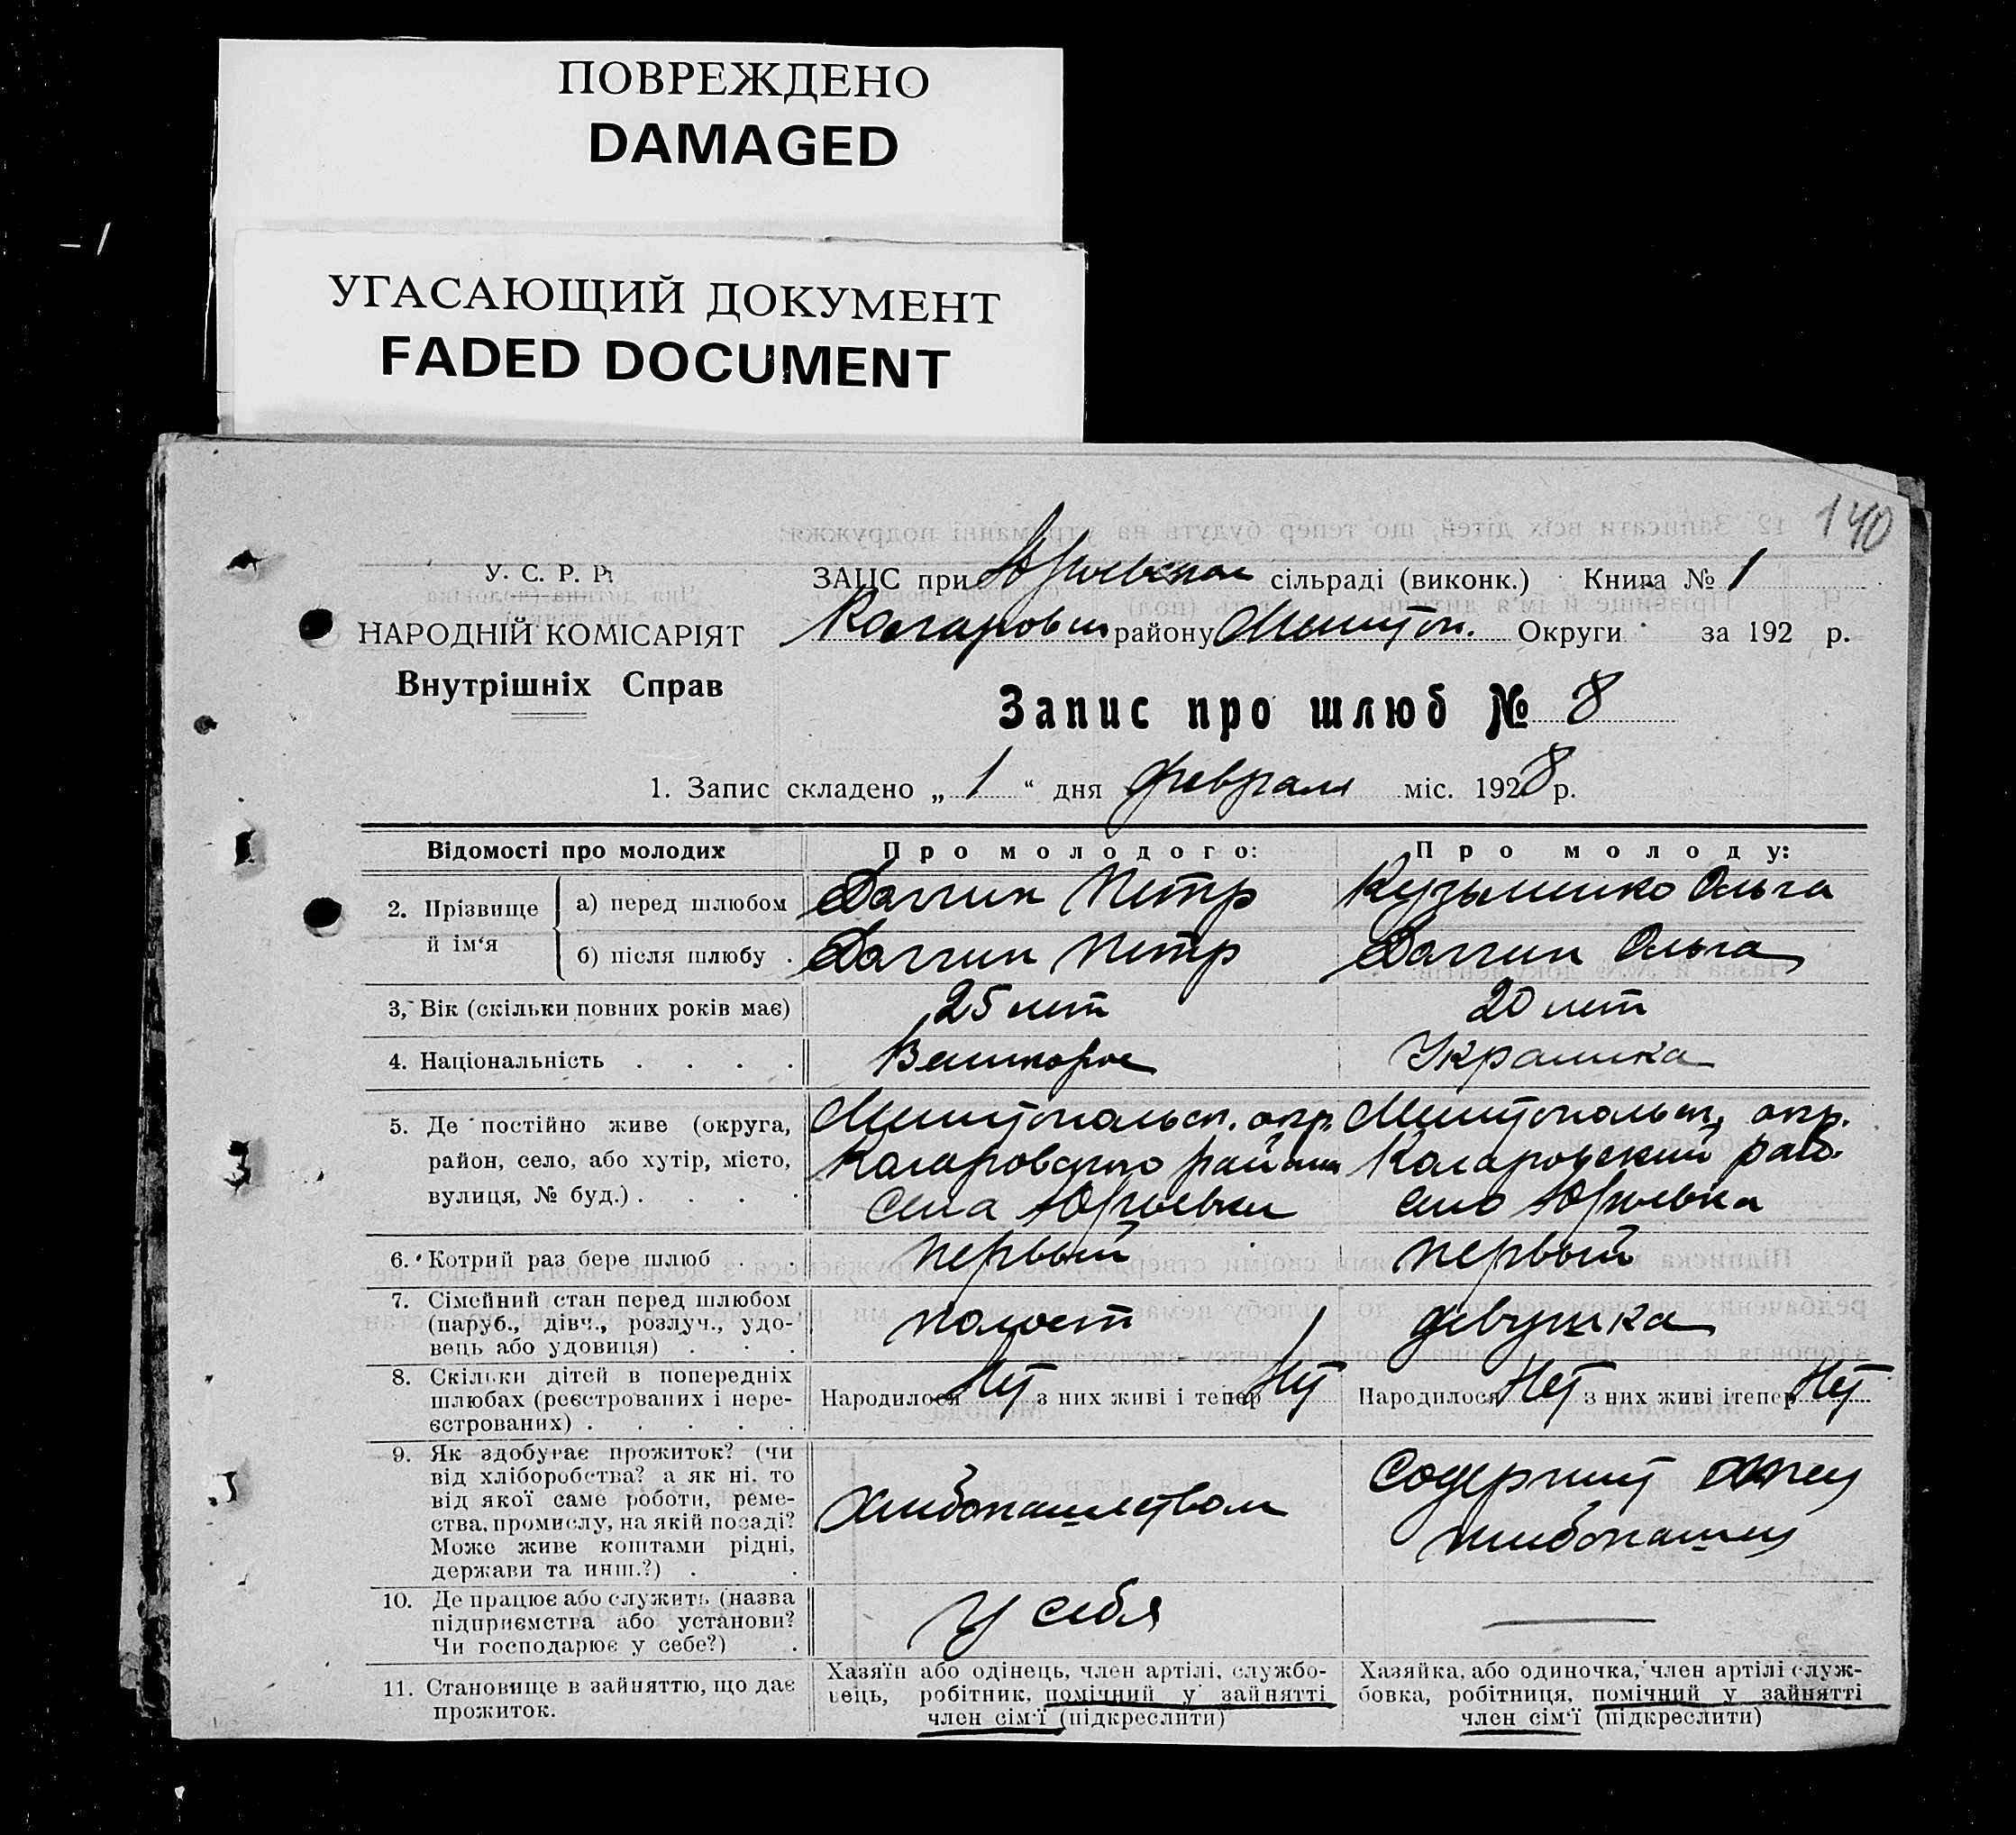 ПОВРЕЖДЕНО
DAMAGED
УГАСАЮЩИЙ ДОКУМЕНТ
FADED DOCUMENT
140
У. С. Р. Р.
НАРОДНІЙ КОМІСАРІЯТ
Внутрішніх Справ
ЗАЦС при Юрьевском сільраді (виконк.) Книга № 1
району Округи за 192 р.
Запис про шлюб № 8
1. Запис складено „ 1 “ дня февраля міс. 1928 р.
Відомості про молодих
Про молодого:
Про молоду:
2. Прізвище й ім‘я
а) перед шлюбом Петр Ольга
б) після шлюбу . Петр Ольга
3. Вік (скільки повних років має) 25 лет 20 лет
4. Національність . . . . Великорос Украинка
5. Де постійно живе (округа, Мелитопольск. окр. Мелитопольск. окр.
район, село, або хутір, місто, района
вулиця, № буд.) . . . . села Юрьевки село Юрьевка
6. Котрий раз бере шлюб . . первый первый
7. Сімейний стан перед шлюбом
(паруб., дівч., розлуч., удо-
вець або удовиця) . . . холост девушка
8. Скільки дітей в попередніх
шлюбах (реєстрованих і нере-
єстрованих) . . . . .
Народилося Нет з них живі і тепер Нет
Народилося Нет з них живі ітепер Нет
9. Як здобуває прожиток? (чи
від хліборобства? а як ні, то
від якої саме роботи, реме-
ства, промислу, на якій посаді?
Може живе коштами рідні,
держави та инш.?) . .
хлебопашеством
содержит отец
хлебопашец
10. Де працює або служить (назва
підприємства або установи?
Чи господарює у себе?) .
у себя
11. Становище в зайняттю, що дає
прожиток.
Хазяїн або одінець, член артілі, службо-
вець, робітник, помічний у зайнятті
член сім‘ї (підкреслити)
Хазяйка, або одиночка, член артілі служ-
бовка, робітниця, помічний у зайнятті
член сім‘ї (підкреслити)